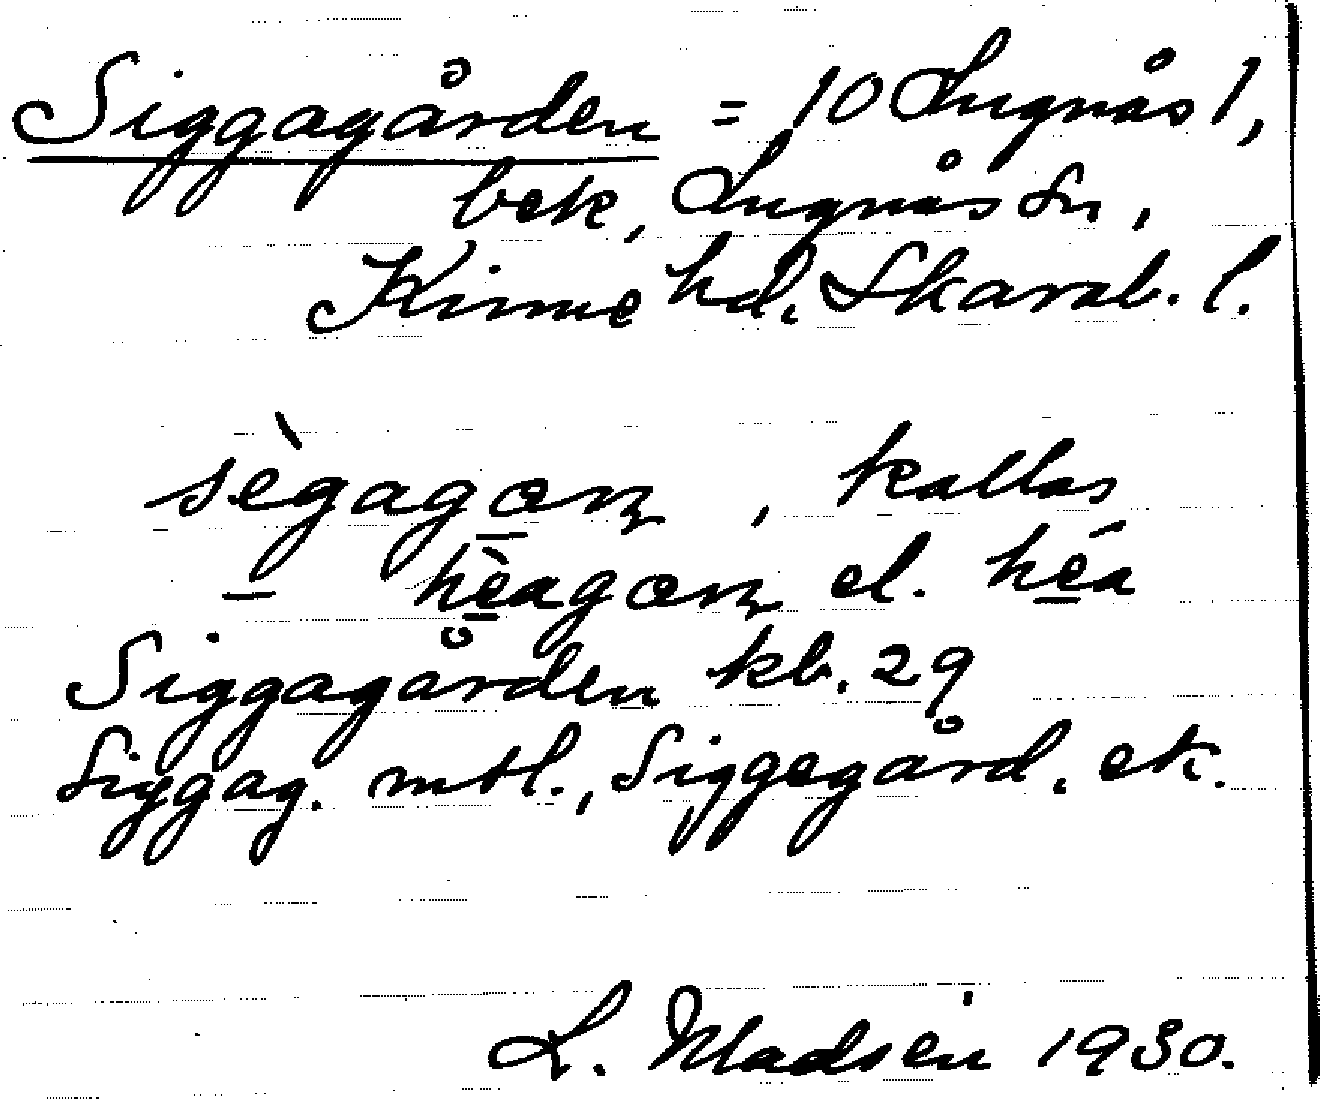 Siggagården = 10 Lugnås 1,
bek, Lugnås sn,
Kinne hd. Skarab. l.
sègagɑɳ , kallas
hèagɑɳ el. héa
Siggagården kb. 29
Siggag. mtl., Siggegård. ek.
L. Madsén 1930.